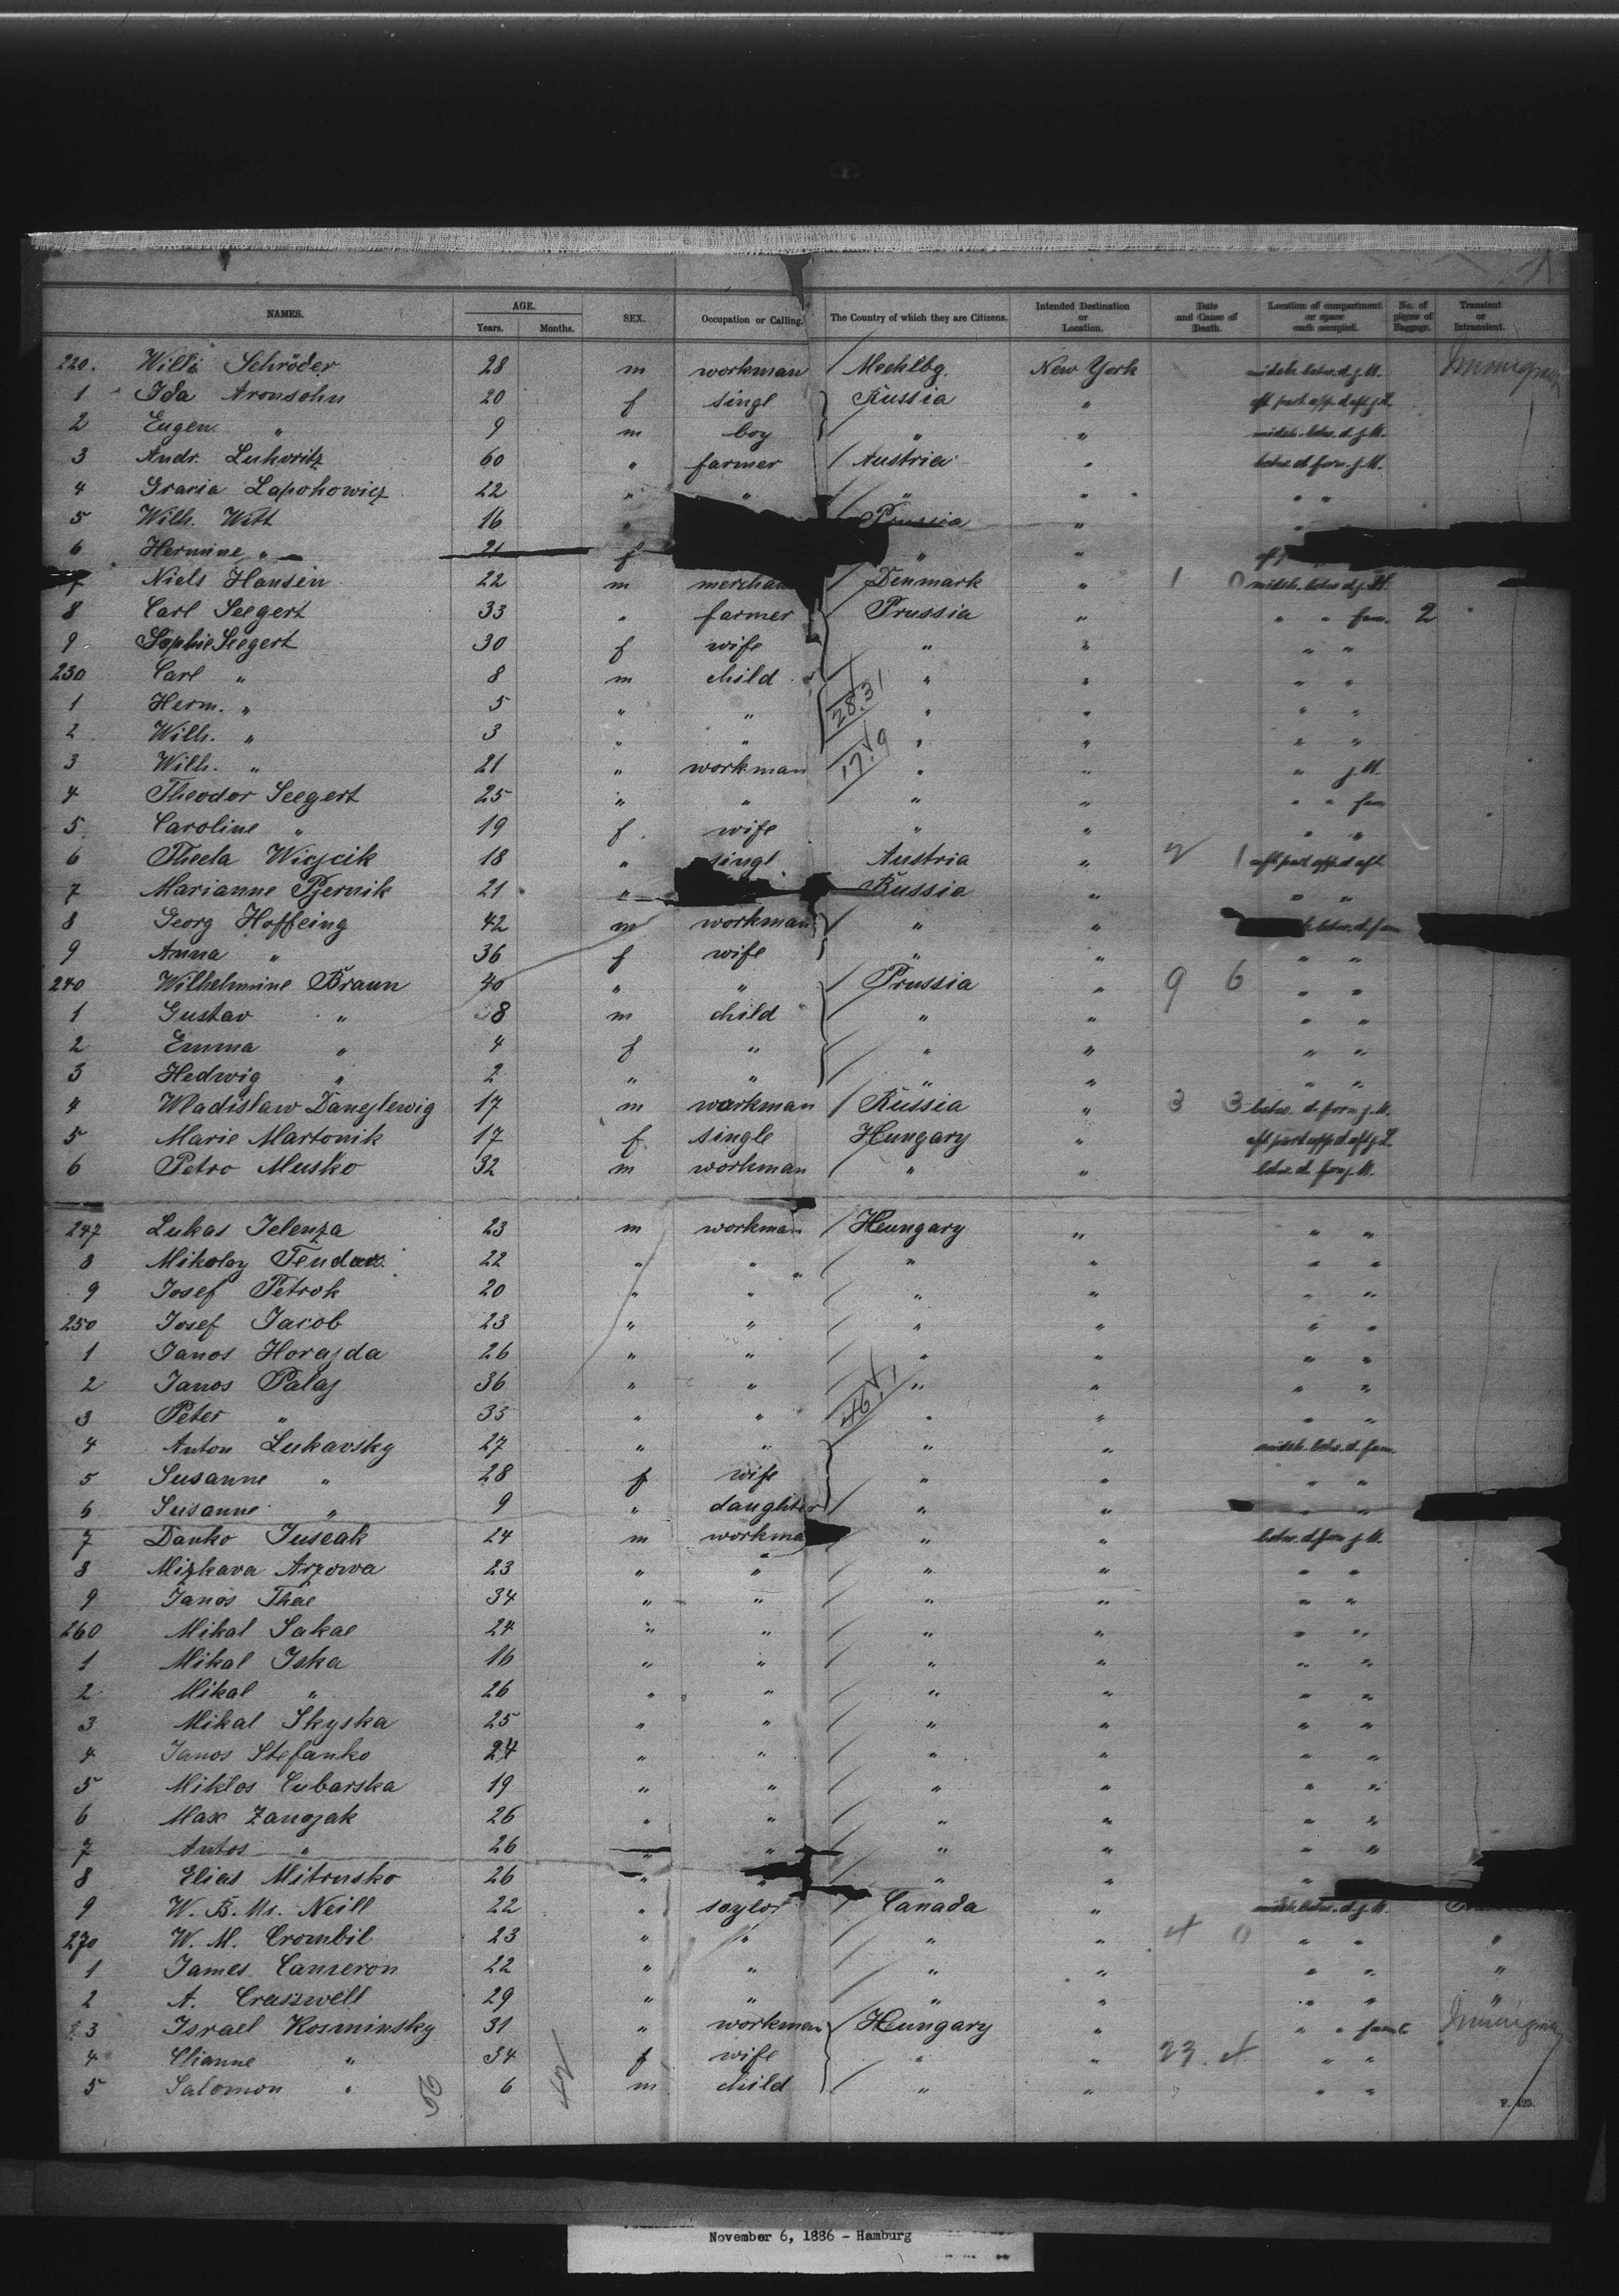 NAMES. AGE. Years. Months. SEX. Occupation or Calling. The Country of which they are Citizens. Intended Destination or Location. Date and Cause of Death. Location of compartment or space each occupied. No. of pieces of Baggage. Transient or Intransient.
220. Willi Schröder 28 m workman / Mecklbg. New York midsh. betw. d. j. M.
1 Ida Aronsohn 20 f singl Russia " aft part upp. d aft j. L.
2 Eugen " 9 m boy " " midsh. betw. d. j. M.
3 Andr. Lukoritz 60 " farmer / Austria " betw. d. forw. j. M.
4 Graria Lapohowicz 22 " " / " " " "
5 Wilh. Witt 16 " / Prussia "
6 Hermine " 21 f " "
7 Niels Hansen 22 m merchan / Denmark " 1 0 midsh. betw d. j. M.
8 Carl Seegert 33 " farmer / Prussia " " " fam. 2
9 Sophie Seegert 30 f wife " " " "
230 Carl " 8 m child " " " "
1 Herm. " 5 " " " " " "
2 Wilh. " 3 " " " " " "
3 Wilh. " 21 " workman " " " j. M.
4 Theodor Seegert 25 " " / " " " " fam
5 Caroline " 19 f wife " " " "
6 Thecla Wiczcik 18 " singl Austria " 2 1 aft part upp. d aft
7 Marianne Pjernik 21 " Russia " " "
8 Georg Hoffeing 42 m workman / " " betw. d. fam
9 Anna " 36 f wife " " " "
240 Wilhelmine Braun 40 " " / Prussia " 9 6 " "
1 Gustav " 8 m child " " " "
2 Emma " 4 f " " " " "
3 Hedwig " 2 " " " " " "
4 Wladislaw Daneglewig 17 m workman / Russia " 3 3 betw. d. forw j. M.
5 Marie Martonik 17 f single Hungary " aft part upp d aft j. L.
6 Petro Musko 32 m workman / " " betw. d. forw j. M.
247 Lukas Jelenza 23 m workman / Hungary " " "
8 Mikoloy 22 " " / " " " "
9 Josef Petrok 20 " " / " " " "
250 Josef Jacob 23 " " / " " " "
1 Janos Horajda 26 " " / " " " "
2 Janos Palaj 36 " " / " " " "
3 Peter " 35 " " / " " " "
4 Anton Lukavsky 27 " " " " midsh. betw. d. fam.
5 Susanne " 28 f wife " " " "
6 Susanne " 9 " daughter / " " " "
7 Danko Juseak 24 m workma " " betw. d. forw j. M.
8 Mizkava Arzowa 23 " " / " " " "
9 Janos Thae 34 " " / " " " "
260 Mikal Sakae 24 " " / " " " "
1 Mikal Iska 16 " " / " " " "
2 Mikal " 26 " " / " " " "
3 Mikal Skyska 25 " " / " " " "
4 Janos Stefanko 24 " " / " " " "
5 Miklos Cubarska 19 " " / " " " "
6 Max Zanozak 26 " " / " " " "
7 Antos " 26 " " / " " " "
8 Elias Mitrusko 26 " " / " " "
9 W. B. Mc. Neill 22 " saylor / Canada " midsh. betw. d. j. M.
270 W. M. Crombil 23 " " / " " 4 0 " " "
1 James Cameron 22 " " / " " " " "
2 A. Crasswell 29 " " / " " " " "
3 Israel Kosminsky 31 " workman / Hungary " " " fam
4 Clianne " 34 f wife " " 23. 4. " "
5 Salomon " 6 m child / " " " "
28.31
17.19
56 42
F. 125.
November 6, 1886 - Hamburg